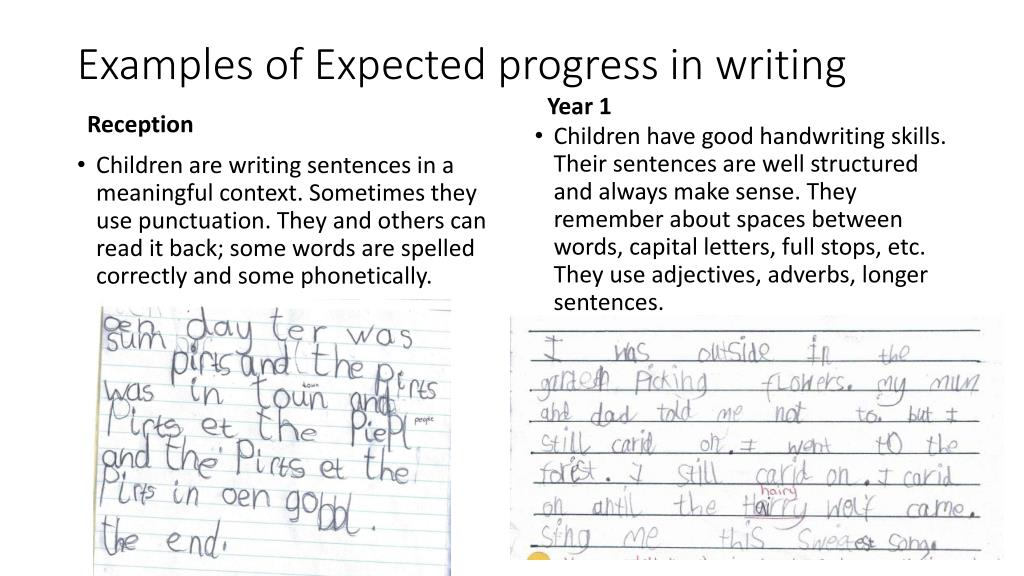 Examples of Expected progress in writing
Reception
• Children are writing sentences in a
meaningful context. Sometimes they
use punctuation. They and others can
read it back; some words are spelled
correctly and some phonetically.
oen day ter was
sum pirts and the pirts
was in toun and
town
Pirts et the Piepl
people
and the Pirts et the
Pirts in oen gobbl.
the end.
Year 1
• Children have good handwriting skills.
Their sentences are well structured
and always make sense. They
remember about spaces between
words, capital letters, full stops, etc.
They use adjectives, adverbs, longer
sentences.
I was outside In the
Picking flowers. my mum
and dad told me not to. but I
still carid on. I went to the
forest. I still carid on. I carid
hairy
on antil the wolf came.
sing me this sweetest song.